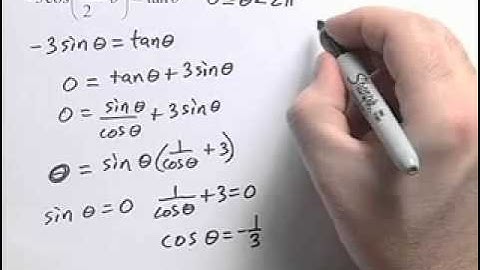 -3cos(π/2 - θ) = tanθ   0 ≤ θ < 2π
-3 sin θ = tan θ
0 = tan θ + 3 sin θ
0 = sin θ/cos θ + 3 sin θ
0 = sin θ (1/cos θ + 3)
sin θ = 0   1/cos θ + 3 = 0
cos θ = -1/3
Sharpie